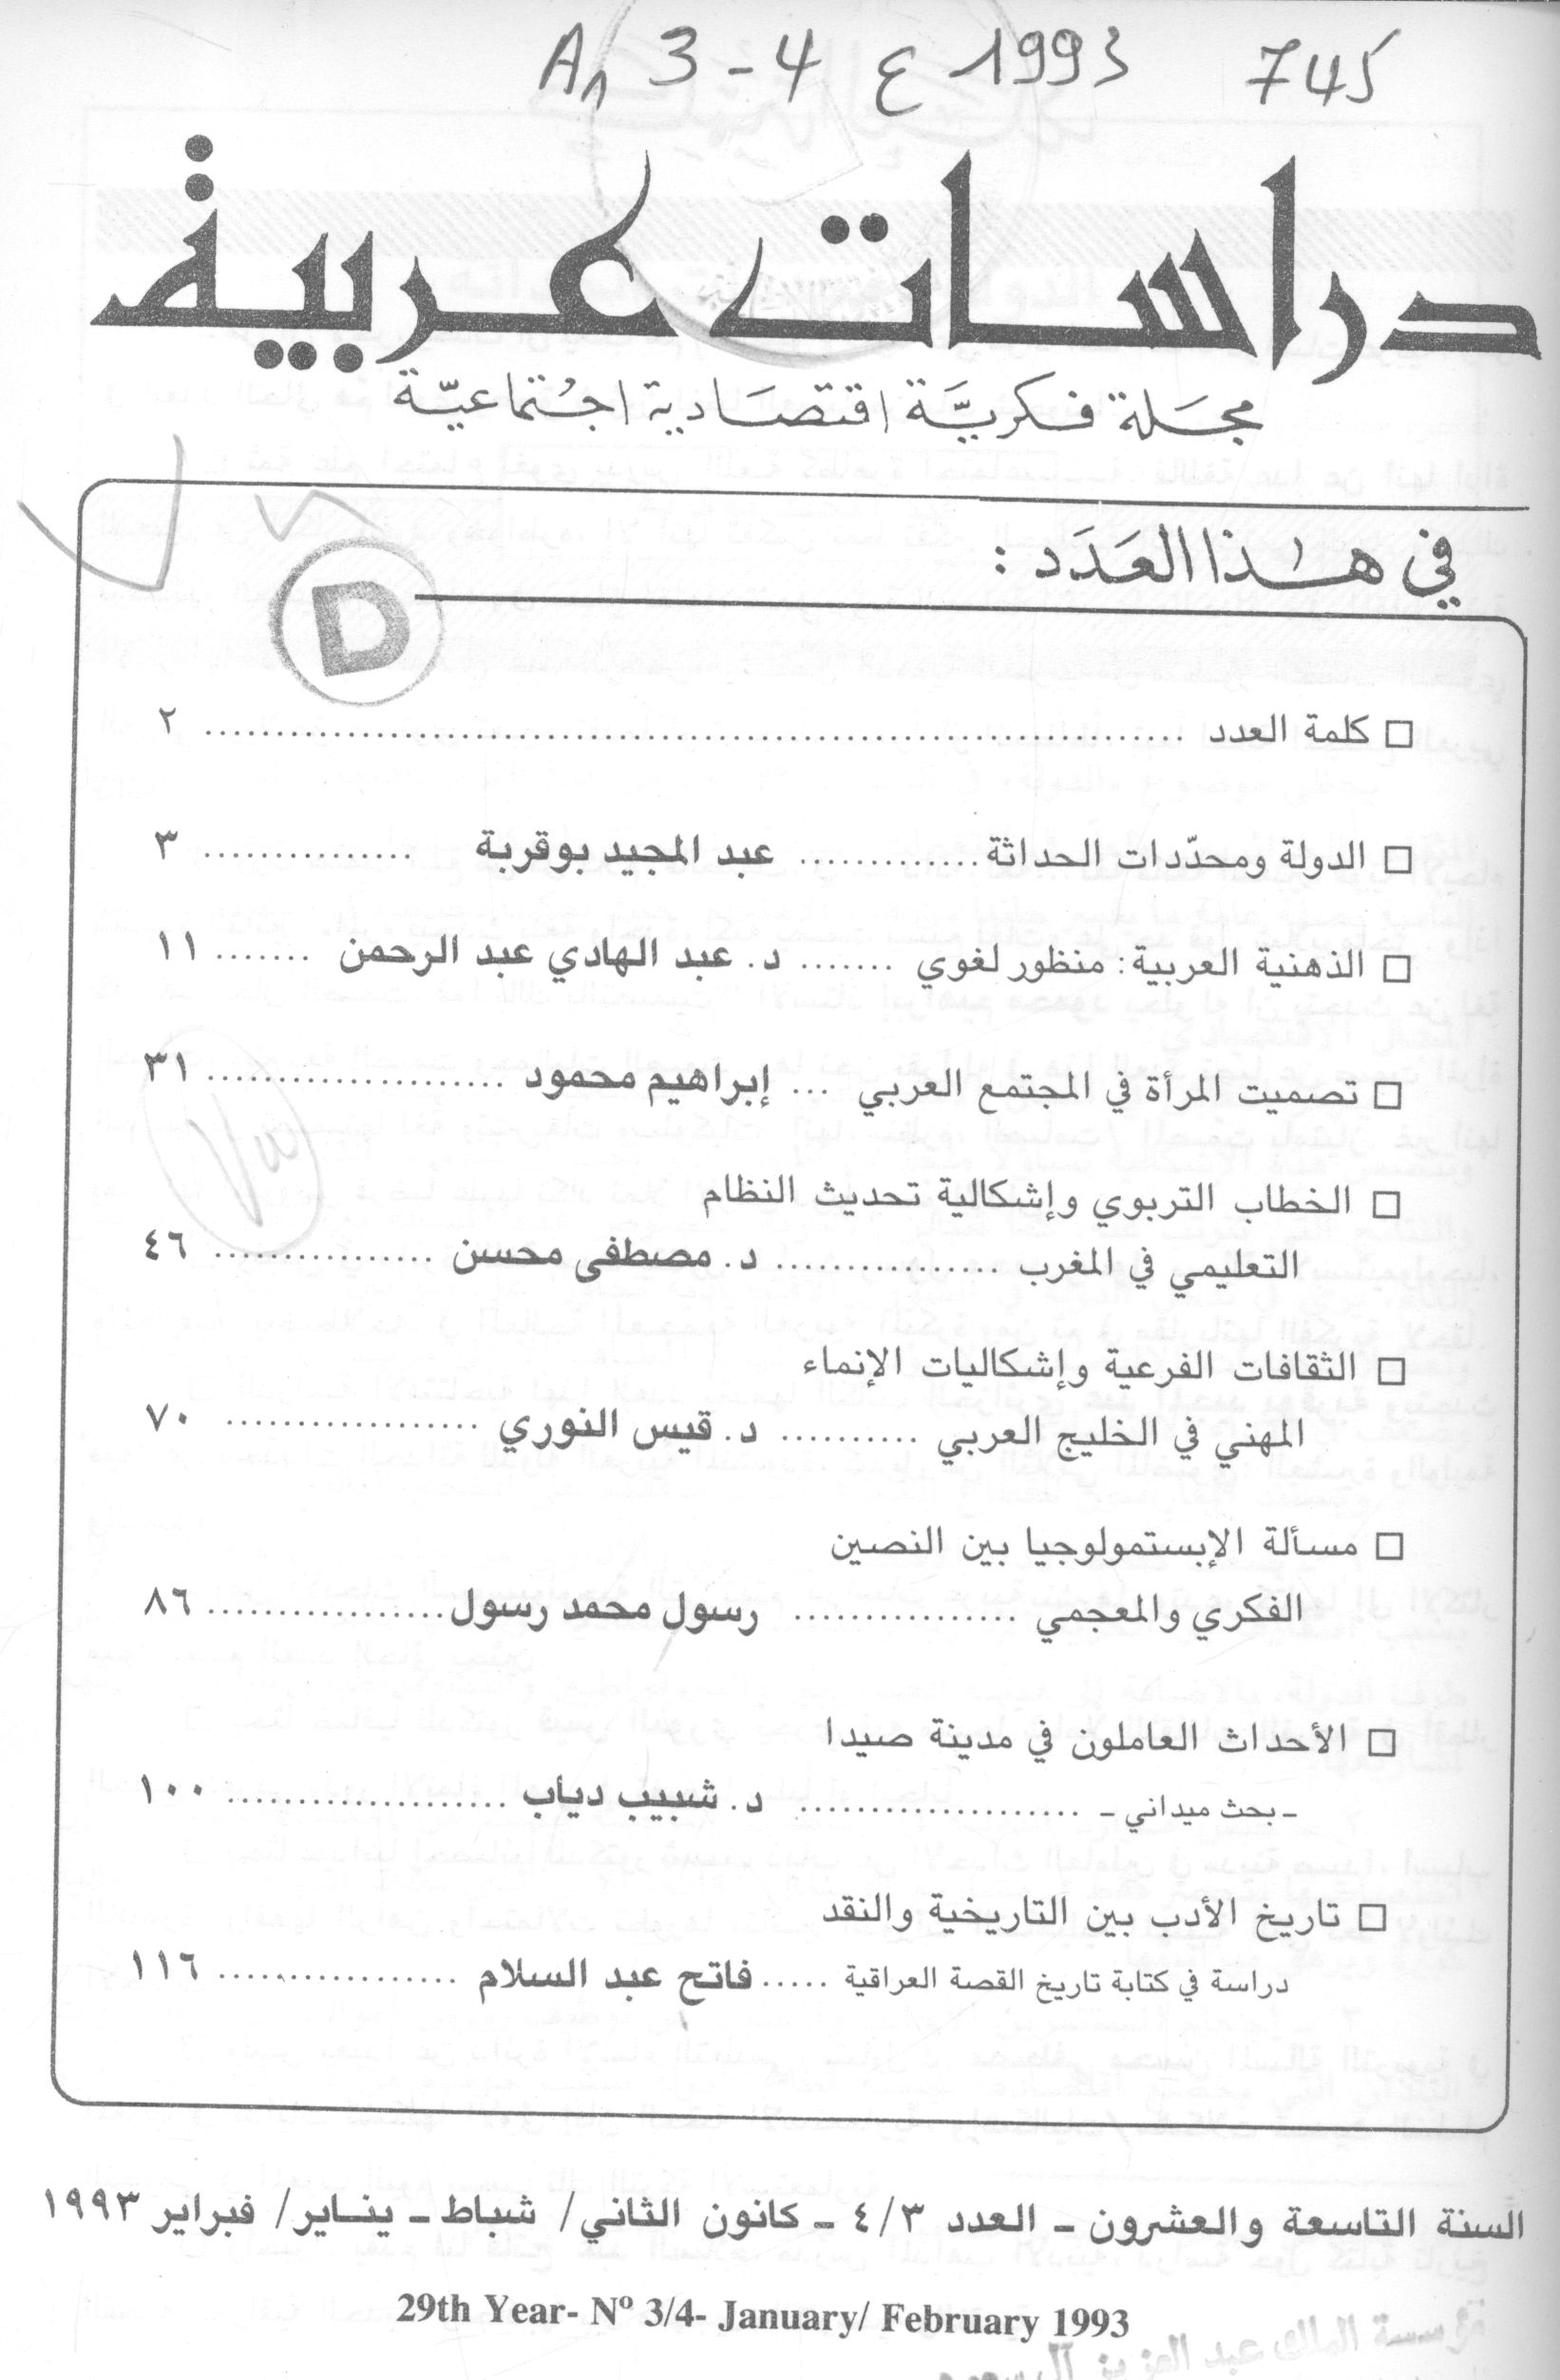 A1 3-4 ع 1993 745
دراسات عربية
مجلة فكريّة اقتصادية اجتماعيّة
في هذا العَدَد :
D
□ كلمة العدد ........ ٢
□ الدولة ومحدّدات الحداثة ........ عبد المجيد بوقربة ........ ٣
□ الذهنية العربية: منظور لغوي ....... د. عبد الهادي عبد الرحمن ....... ١١
□ تصميت المرأة في المجتمع العربي ... إبراهيم محمود ........ ٣١
□ الخطاب التربوي وإشكالية تحديث النظام
التعليمي في المغرب ........ د. مصطفى محسن ........ ٤٦
□ الثقافات الفرعية وإشكاليات الإنماء
المهني في الخليج العربي ........ د. قيس النوري ........ ٧٠
□ مسألة الإبستمولوجيا بين النصين
الفكري والمعجمي ........ رسول محمد رسول ........ ٨٦
□ الأحداث العاملون في مدينة صيدا
ـ بحث ميداني ـ ........ د. شبيب دياب ........ ١٠٠
□ تاريخ الأدب بين التاريخية والنقد
دراسة في كتابة تاريخ القصة العراقية ..... فاتح عبد السلام ........ ١١٦
السنة التاسعة والعشرون ـ العدد ٤/٣ ـ كانون الثاني/ شباط ـ ينـاير/ فبراير ١٩٩٣
29th Year- Nº 3/4- January/ February 1993